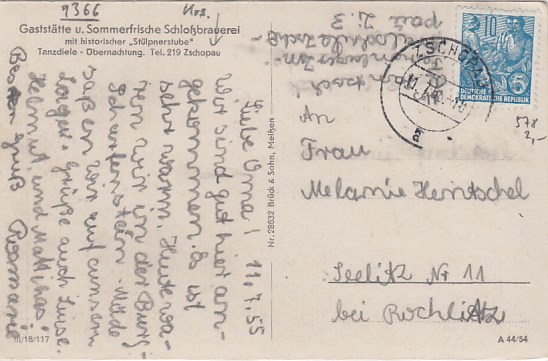 9366
Gaststätte u. Sommerfrische Schloßbrauerei
mit historischer „Stülpnerstube"
Tanzdiele - Übernachtung. Tel. 219 Zschopau
Liebe Oma! 11.7.55
Wir sind gut hier an-
gekommen. Es ist
sehr warm. Heute wa-
ren wir in der Burg
Scharfenstein. Müde
saßen wir auf unsern
Lager. Grüße auch Luise.
Helmut und Matthias
Besten Gruß Rosmarie
III/18/117
Nr. 28632 Brück & Sohn, Meißen
ZSCHOPAU
10
5
DEUTSCHE
DEMOKRATISCHE REPUBLIK
578
2,-
An
Frau
Melanie Hentschel
Seelitz Nr 11
bei Rochlitz
A 44/54